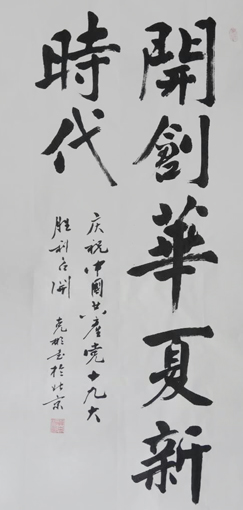 開創華夏新
時代
庆祝中國共產党十九大
胜利召開 克彬书於北京